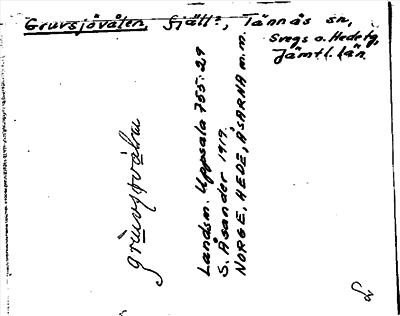 Gruvsjövålen, fjäll:, Tännäs sn,
Svegs o. Hede tg,
Jämtl. län.
grùvsjovålu
Landsm. Uppsala 755:29
S. Åsander 1919.
NORGE, HEDE, ÅSARNA m.m.